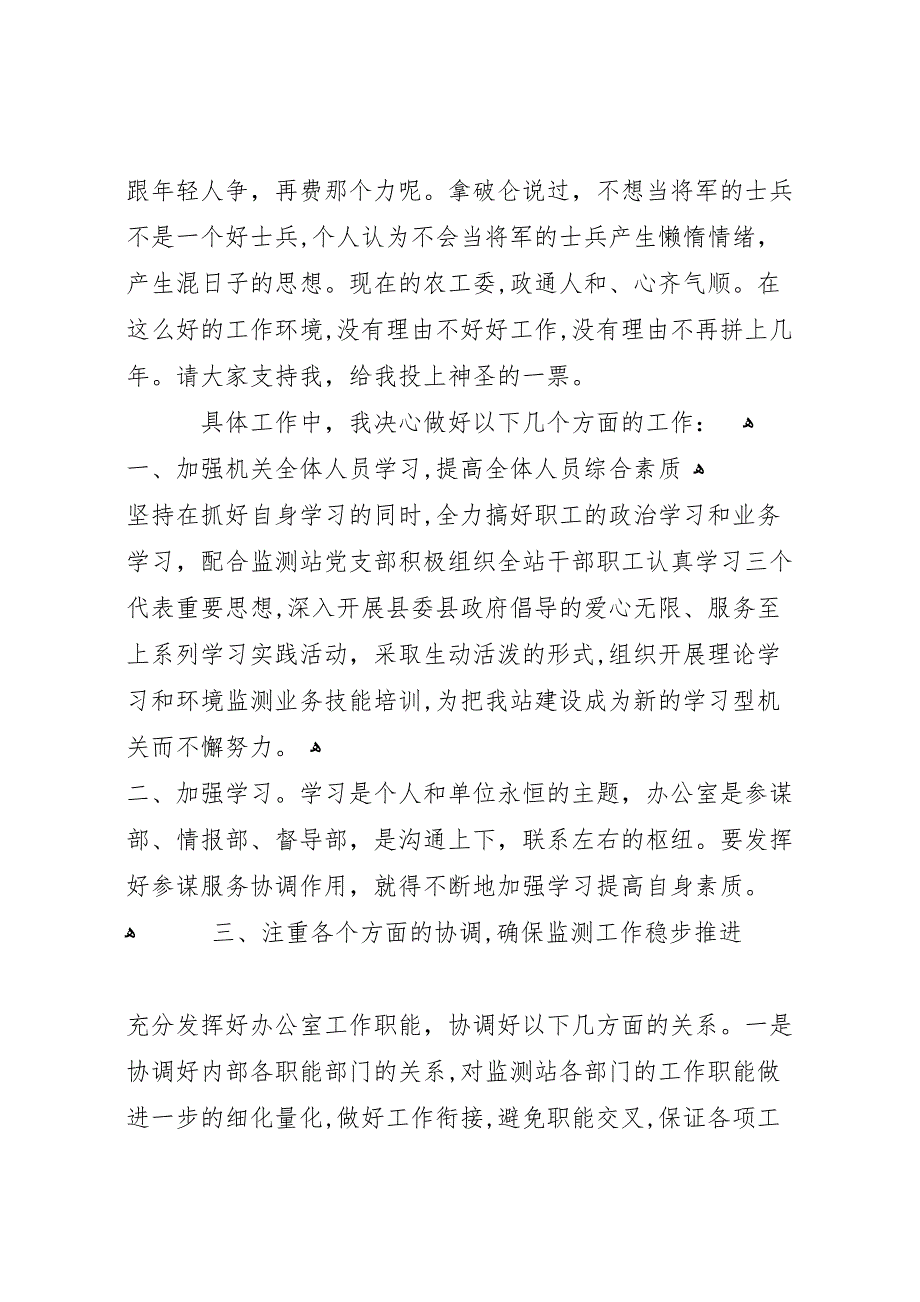 跟年轻人争，再费那个力呢。拿破仑说过，不想当将军的士兵
不是一个好士兵,个人认为不会当将军的士兵产生懒惰情绪，
产生混日子的思想。现在的农工委,政通人和、心齐气顺。在
这么好的工作环境,没有理由不好好工作,没有理由不再拼上几
年。请大家支持我，给我投上神圣的一票。
具体工作中，我决心做好以下几个方面的工作： ﻫ
一、加强机关全体人员学习,提高全体人员综合素质 ﻫ
坚持在抓好自身学习的同时,全力搞好职工的政治学习和业务
学习，配合监测站党支部积极组织全站干部职工认真学习三个
代表重要思想,深入开展县委县政府倡导的爱心无限、服务至
上系列学习实践活动，采取生动活泼的形式,组织开展理论学
习和环境监测业务技能培训,为把我站建设成为新的学习型机
关而不懈努力。 ﻫ
二、加强学习。学习是个人和单位永恒的主题，办公室是参谋
部、情报部、督导部，是沟通上下，联系左右的枢纽。要发挥
好参谋服务协调作用，就得不断地加强学习提高自身素质。
ﻫ 三、注重各个方面的协调,确保监测工作稳步推进
充分发挥好办公室工作职能，协调好以下几方面的关系。一是
协调好内部各职能部门的关系,对监测站各部门的工作职能做
进一步的细化量化,做好工作衔接,避免职能交叉,保证各项工